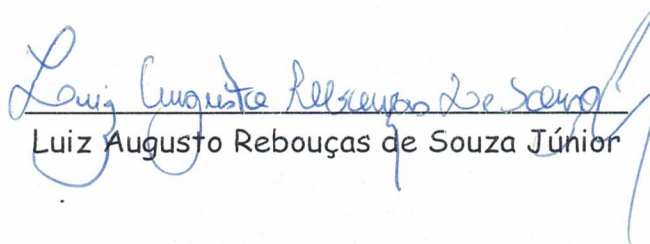 Luiz Augusto Rebouças De Souza Jr
Luiz Augusto Rebouças de Souza Júnior